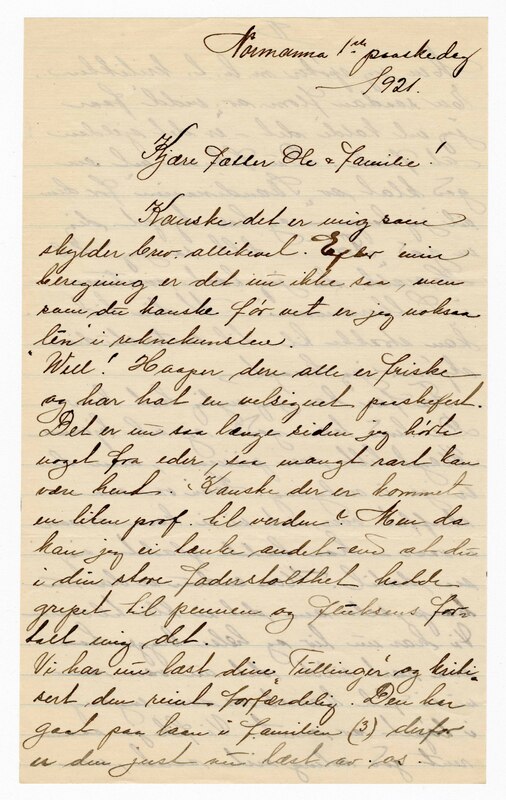 Normanna 1ste paaskedag
1921.
Kjære Fætter Ole & familie!
Kanske det er mig som
skylder brev allikevel. Efter min
beregning er det nu ikke saa, men
som du kanske før vet er jeg noksaa
"lên" i reknekunsten.
"Well! Haaper dere alle er friske
og har hat en velsignet paaskefest.
Det er nu saa længe siden jeg hørte
noget fra eder, saa mangt rart kan
være hendt. Kanske der er kommet
en liten prof. til verden? Men da
kan jeg ei tænke andet end at du
i din store faderstolthet hadde
grepet til pennen og fluksens for-
talt mig det.
Vi har nu læst dine "Tullinger" og kriti-
sert den reint forfærdelig. Den har
gaat paa laan i familien (3) derfor
er den just nu læst av os.